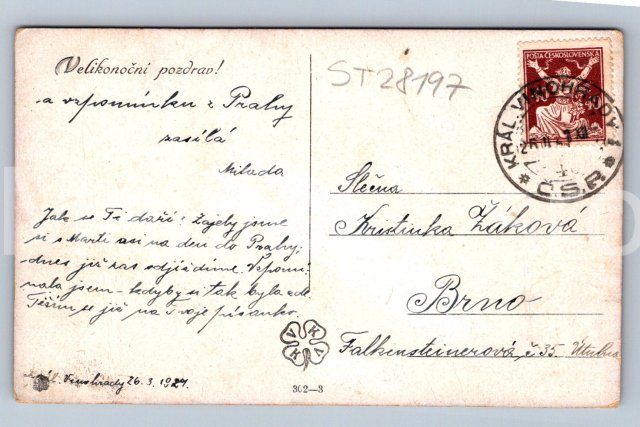 Velikonoční pozdrav!
a vzpomínku z Prahy
zasílá
Milada
Jak se Ti daří? Zajely jsme
si s Marti asi na den do Prahy,
dnes již zas odjíždíme. Vzpomí-
nala jsem - kdyby si tak byla zde
Těším se již na Tvoje psaníčko.
Vinohrady 26.3.1921
ST28197
POŠTA ČESKOSLOVENSKÁ
KRÁL. VINOHRADY 1
Č.S.R.
Slečna
Kristinka Žáková
Brno
Falkensteinerová č. 35.
V K V K
302—3